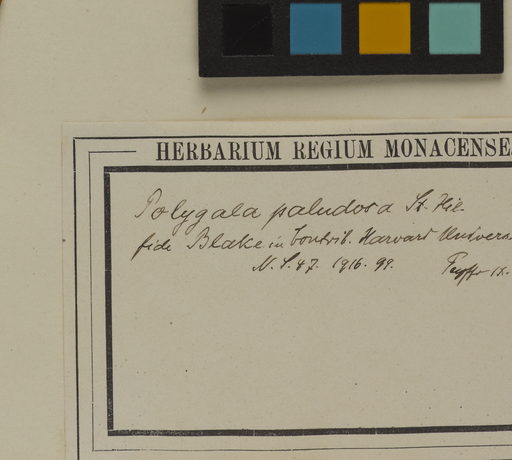 HERBARIUM REGIUM MONACENSE
Polygala paludosa St. Hil.
fide Blake in Contrib. Harvard Univers.
N. S. 47. 1916. 99. IX.